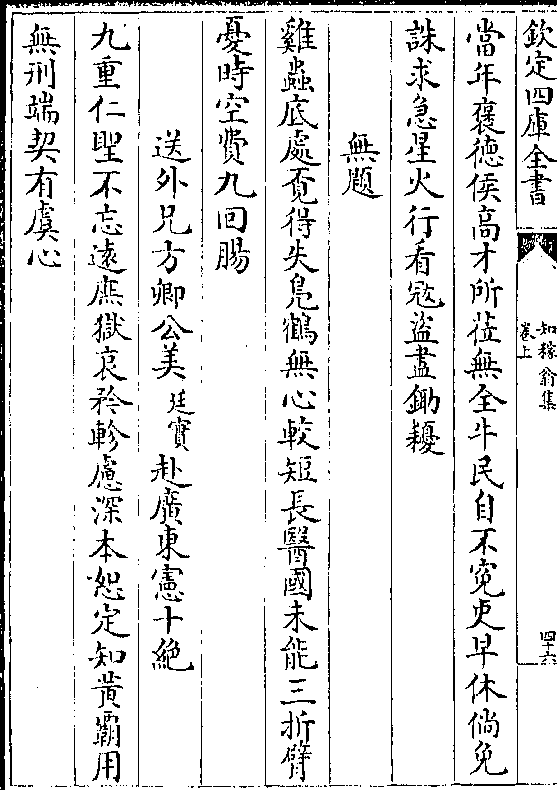 欽定四庫全書
知稼翁集
卷上
四十六
當年褒德侯高才所莅無全牛民自不寃吏早休倘免
誅求急星火行看冦盜盡鋤耰
無題
雞蟲底處覓得失鳬鶴無心較短長醫國未能三折臂
憂時空費九回腸
送外兄方卿公美廷實赴廣東憲十絶
九重仁聖不忘遠庶獄哀矜軫慮深本恕定知黄霸用
無刑端契有虞心